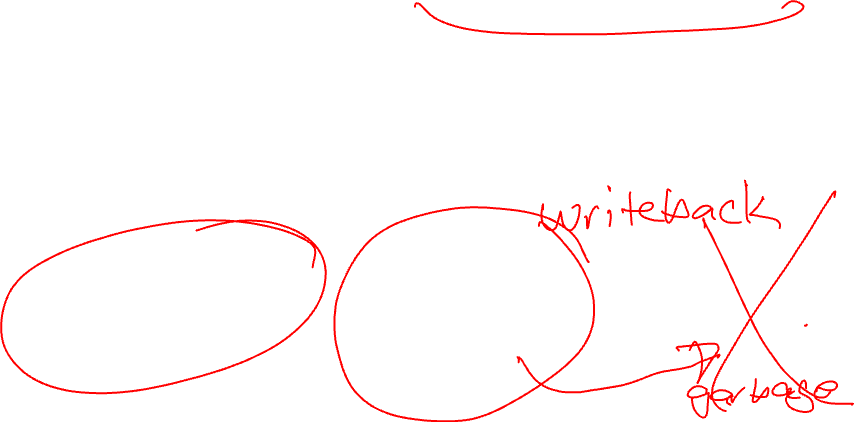 writeback
garbage